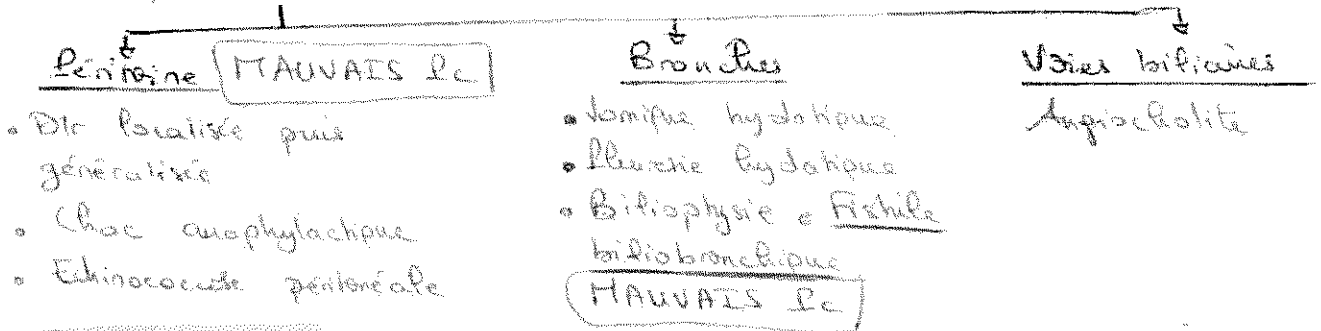 Péritoine MAUVAIS Pc
• Dlr localisée puis
généralisée
• Choc anaphylactique
• Echinococcose péritonéale
Bronches
• Vomique hydatique
• Pleurésie hydatique
• Biliophysie = Fistule
biliobronchique
MAUVAIS Pc
Voies biliaires
Angiocholite